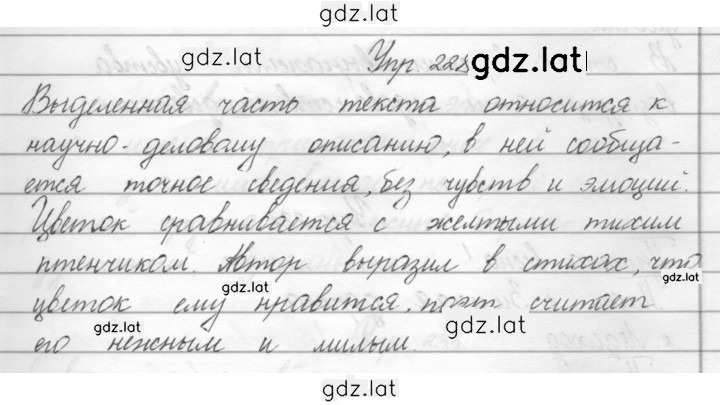 gdz.lat
gdz.lat Упр 228 gdz.lat
Выделенная часть текста относится к
научно-деловому описанию, в ней сообща-
ется точное сведения, без чувств и эмоций.
Цветок сравнивается с желтыми тихим
птенчиком. Автор выразил в стихах, что
gdz.lat gdz.lat
цветок ему нравится. поэт считает
gdz.lat gdz.lat
его нежным и милым.
gdz.lat